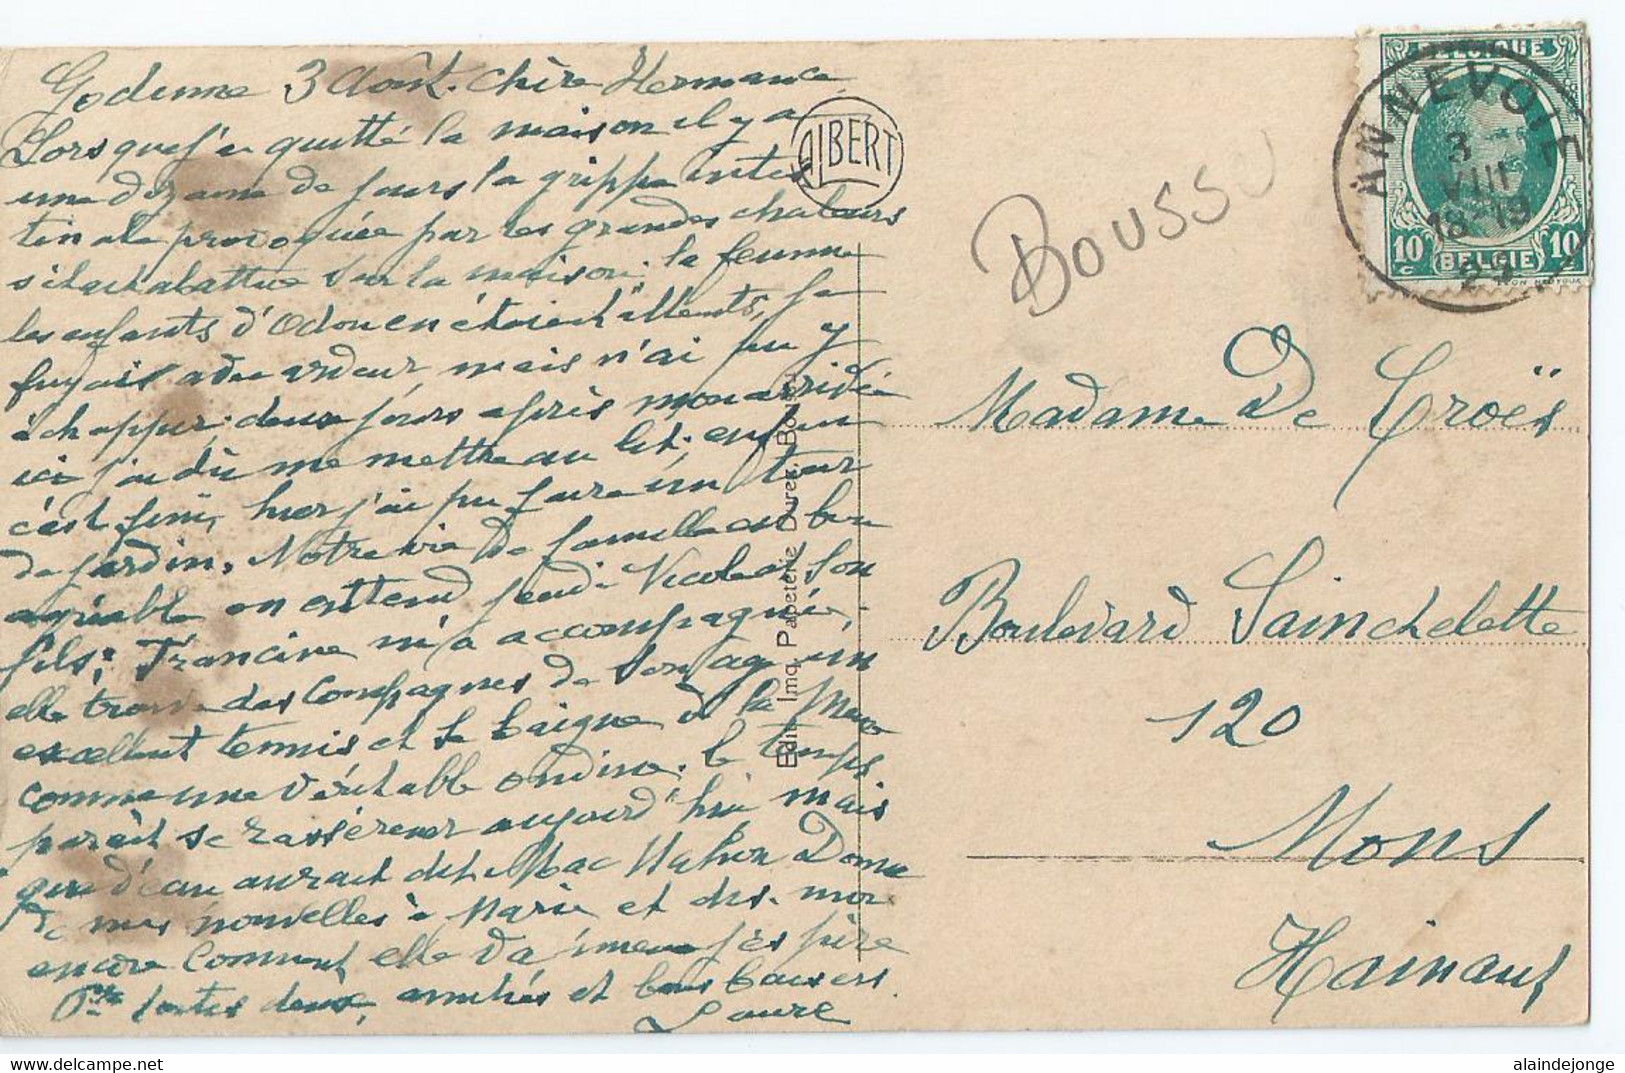 Godinne 3 Août. Chère Hermance
Lorsque j'ai quitté la maison il y a
une dizaine de jours la grippe intes
tinale provoquée par les grandes chaleurs
s'était abattue sur la maison. la femme
les enfants d'Odon en étaient attents, je
fuyais avec ardeur, mais n'ai pu y
échapper. deux jours après mon arrivée
ici j'ai dû me mettre au lit. enfin
c'est fini, hier j'ai pu faire un tour
de jardin. Notre vie de famille est bien
agréable on entend jeudi Nicolas son
fils; Francine m'a accompagnée,
elle trouve des compagnes de son age un
excellent tennis et se baigne à la Meuse
comme une véritable ondine. le temps
parait se rasséréner aujourd'hui mais
que d'eau aurait dit Mac Mahon Donne
de mes nouvelles à Marie et dis. moi
encore comment elle va j'espère
Pr toutes deux, amitiés et bons baisers.
Laure
ALBERT
Edit. Imq. Papeterie Duree, Bo
Boussu
BELGIQUE
10 c BELGIË 10
ANNEVOIE
3
VIII
18-19
Madame De Croës
Boulevard Sainctelette
120
Mons
Hainaut
alaindejonge